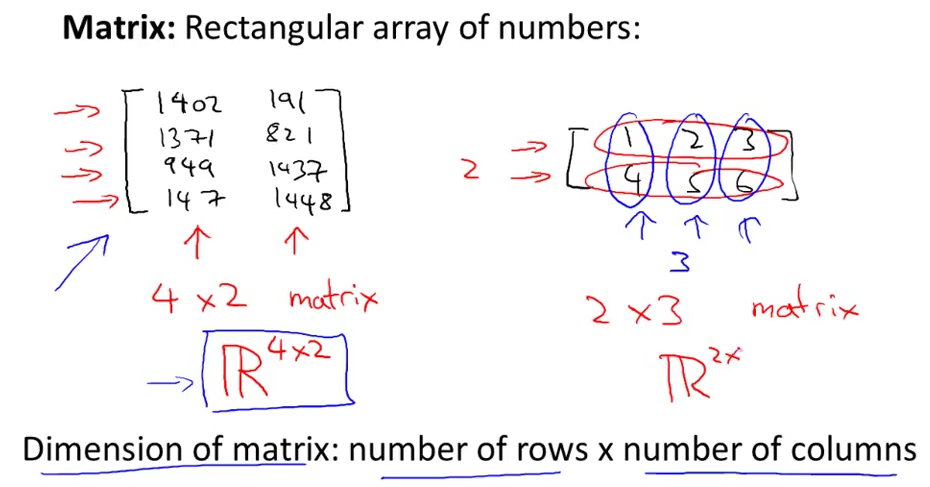 Matrix: Rectangular array of numbers:
1402 191
1371 821
949 1437
147 1448
4 x 2 matrix
ℝ^{4x2}
2
1 2 3
4 5 6
3
2 x 3 matrix
ℝ^{2x}
Dimension of matrix: number of rows x number of columns